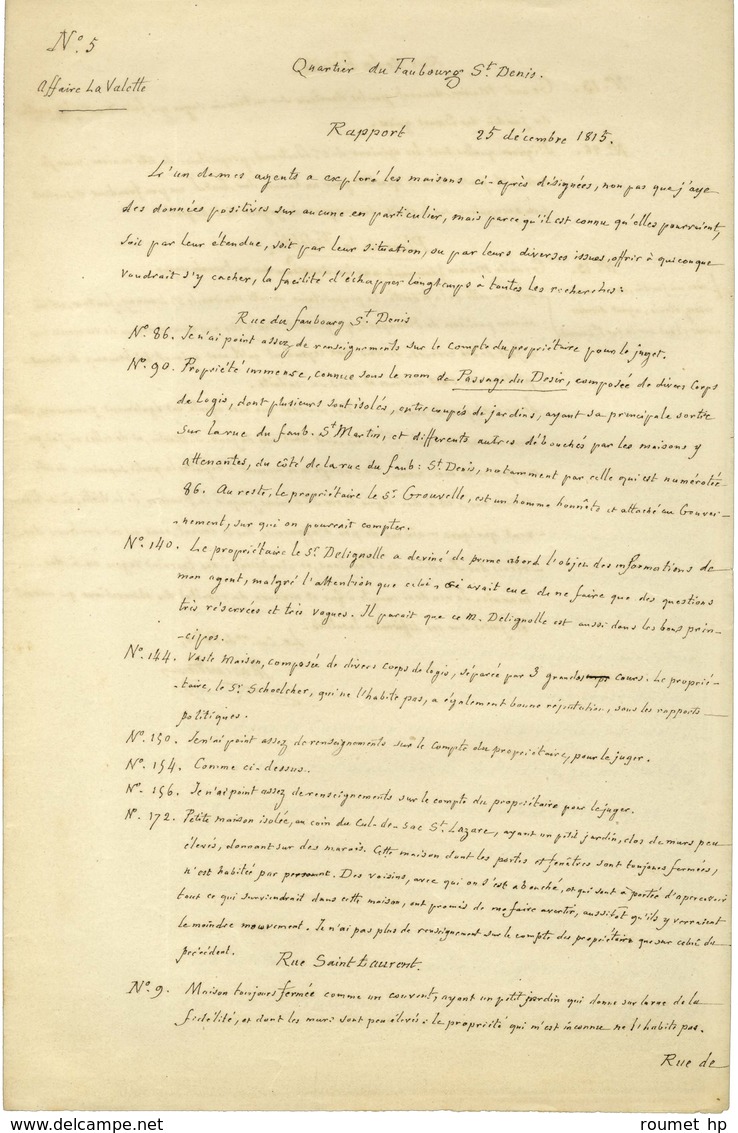 N°. 5
Quartier du Faubourg St. Denis.
Affaire La Valette
Rapport 25 décembre 1815.
L'un de mes agents a exploré les maisons ci-après désignées, non pas que j'aye
des données positives sur aucune en particulier, mais parce qu'il est connu qu'elles pourraient,
soit par leur étendue, soit par leur situation, ou par leurs diverses issues, offrir à quiconque
voudrait s'y cacher, la facilité d'échapper longtemps à toutes les recherches:
Rue du faubourg St. Denis
N°. 86. Je n'ai point assez de renseignements sur le compte du propriétaire pour le juger.
N°. 90. Propriété immense, connue sous le nom de Passage du Desir, composée de divers Corps
de Logis, dont plusieurs sont isolés, entrecoupés de jardins, ayant sa principale sortie
sur la rue du faub. St Martin, et différents autres débouchés par les maisons y
attenantes, du côté de la rue du faub: St. Denis, notamment par celle qui est numérotée
86. Au reste, le propriétaire le Sr. Grouvelle, est un homme honnête et attaché au Gouver-
-nement, sur qui on pourrait compter.
N°. 140. Le propriétaire le Sr. Delignolle a deviné de prime abord l'objet des informations de
mon agent, malgré l'attention que celui-ci avait eue de ne faire que des questions
très réservées et très vagues. Il parait que ce M. Delignolle est aussi dans les bons prin-
-cipes.
N°. 144. Vaste Maison, composée de divers corps de logis, séparée par 3 grandes cours. Le proprié-
-taire, le Sr. Schoelcher, qui ne l'habite pas, a également bonne réputation, sous les rapports
politiques.
N°. 150. Je n'ai point assez de renseignements sur le compte du propriétaire, pour le juger.
N°. 154. Comme ci-dessus.
N°. 156. Je n'ai point assez de renseignements sur le compte du propriétaire pour le juger.
N°. 172. Petite maison isolée, au coin du Cul-de-Sac St. Lazare, ayant un petit jardin, clos de murs peu
élevés, donnant sur des marais. Cette maison dont les portes et fenêtres sont toujours fermées,
n'est habitée par personne. Des voisins, avec qui on s'est abouché, et qui sont à portée d'apercevoir
tout ce qui surviendrait dans cette maison, ont promis de me faire avertir, aussitôt qu'ils y verraient
le moindre mouvement. Je n'ai pas plus de renseignement sur le compte des propriétaire que sur celui du
précédent.
Rue Saint Laurent.
N°. 9. Maison toujours fermée comme un couvent, ayant un petit jardin qui donne sur la rue de la
fidélité, et dont les murs sont peu élevés: le propriété qui m'est inconnue ne l'habite pas.
Rue de
roumet hp